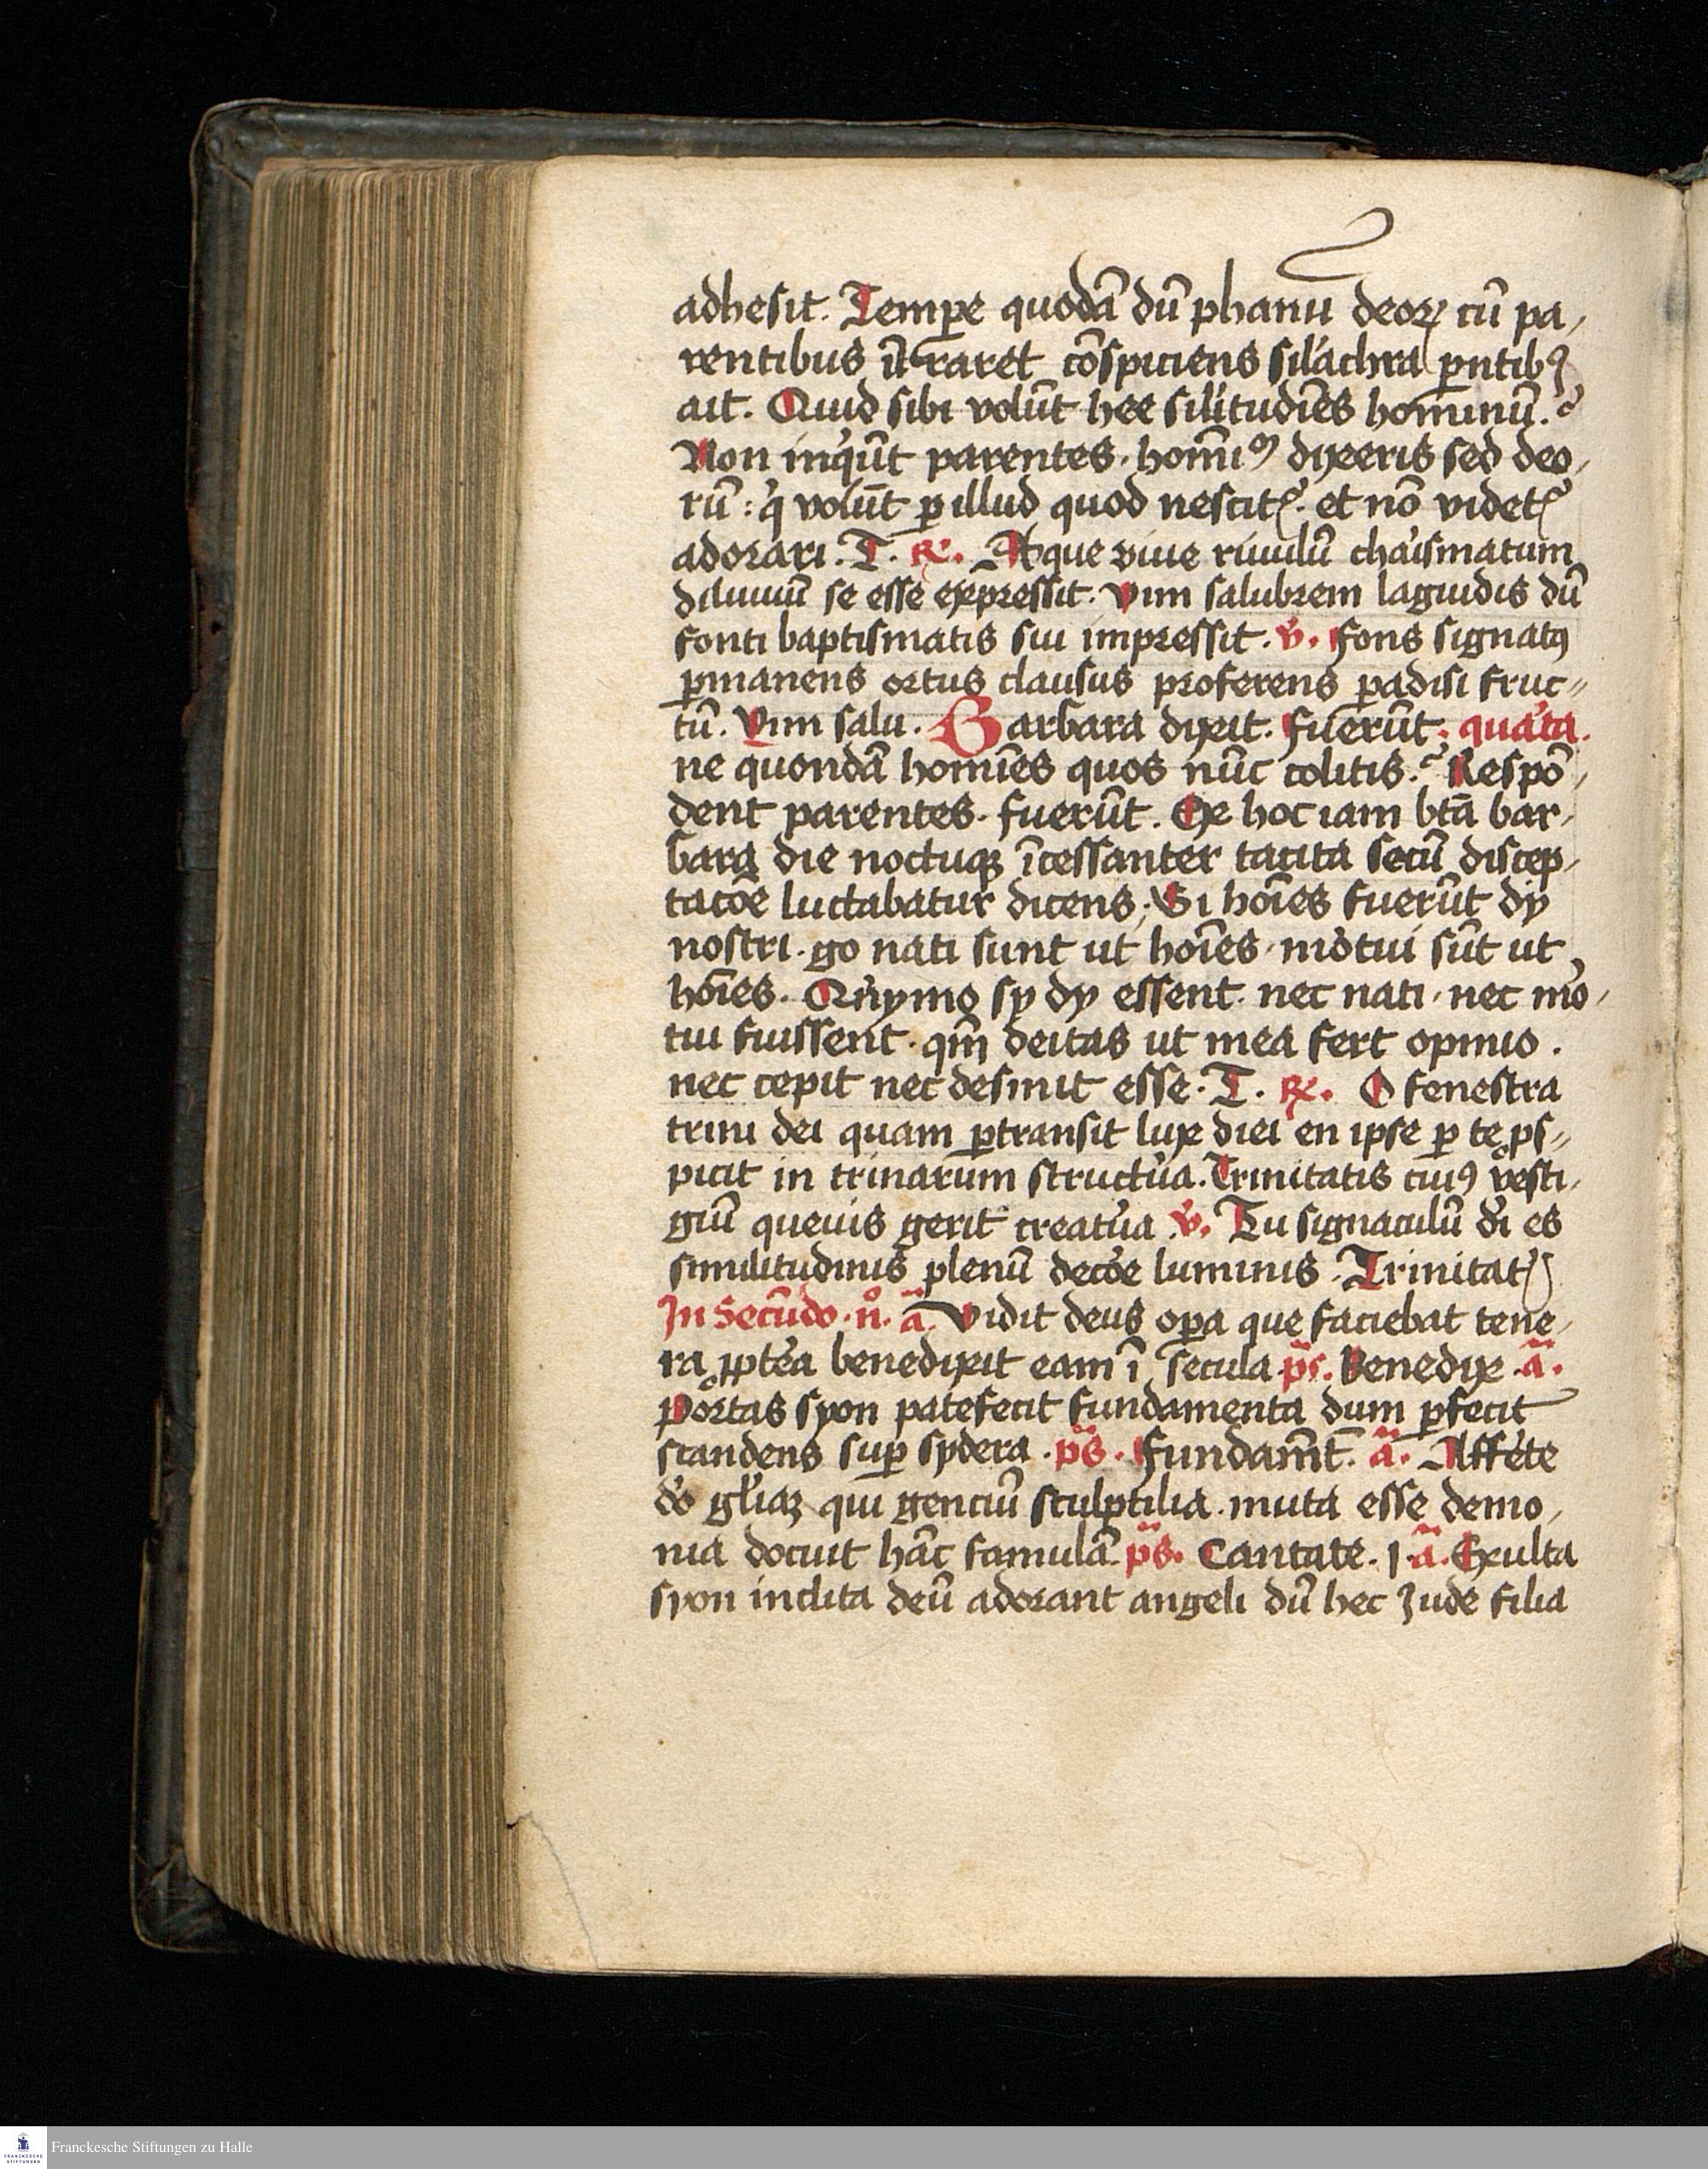 adhesit. Tempe quodā dū phanū deoꝝ cū pa,
rentibus ītraret cōspiciens silachra pntibꝰ
ait. Quid sibi volūt hee silitudīes hominū.?
Non inqūt parentes. homīꝰ dixeris sed deo,
rū: q volūt ꝑ illud quod nescitꝭ. et nō videtꝭ
adorari. T. ℟. Atque viue riuulū chaismatum
diluuiū se esse expressit. Vim salubrem laguidis dū
fonti baptismatis sui impressit. v̄. Fons signatꝰ
ꝑmanens ortus clausus proferens ꝑadisi fruc⸗
tū. Vim salu. Barbara dixit. Fuerūt: quata.
ne quondā homīes quos nūc colitis.? Respō,
dent parentes. fuerūt. Ex hoc iam btā bar,
bara die noctuqꝫ īcessanter tacita secū discep,
tacōe luctabatur dicens; Si hoīes fuerūt dy
nostri. go nati sunt ut hoīes. motui sūt ut
hoīes. Qnymo sy dy essent. nec nati. nec mo,
tui fuissent. qm̄ deitas ut mea fert opinio.
nec cepit nec desinit esse. T. ℟. O fenestra
trini dei quam ꝑtransit lux diei en ipse ꝑ te ꝓs⸗
picit in trinarum structua. Trinitatis cuiꝰ vesti,
giū queuis gerit creatua. v̄. Tu signaculū di es
similitudinis plenū decoe luminis. Trinitatꝭ
In Secūdo. nͦ. ā. Vidit deus oꝑa que faciebat tene,
ra ꝓptea benedixit eam ī secula. ps̄. Benedix. ā.
Portas syon patefecit fundamenta dum ꝑfecit
scandens suꝑ sydera. ps̄. Fundamt̄. ā. Affete
do gliaꝫ qui genciū sculptilia. muta esse demo,
nia docuit hāc famulā. ps̄. Cantate. j. ā. Exulta
syon inclita deū adorant angeli dū hec Jude filia
Franckesche Stiftungen zu Halle